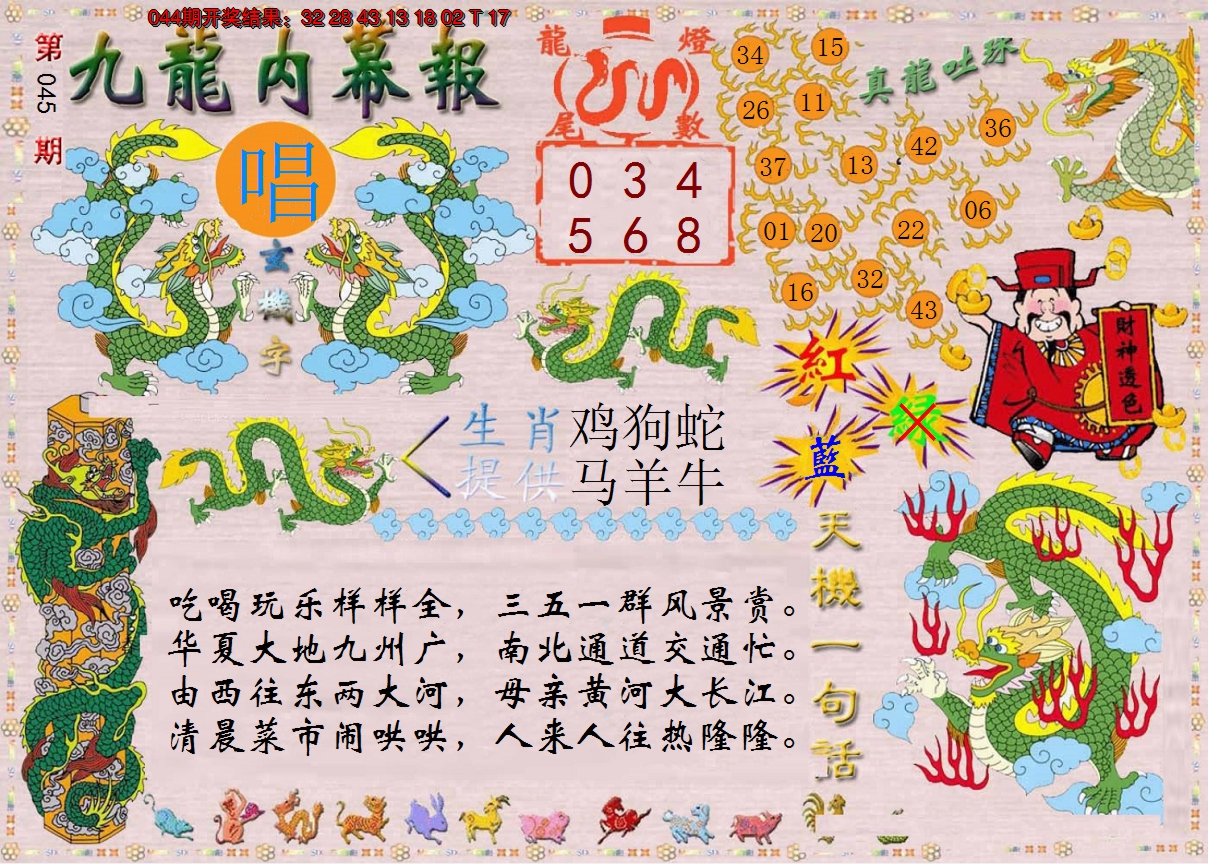 044期开奖结果：32 28 43 13 18 02 T 17
第
045
期
九龍内幕報
唱
玄
機
字
龍 燈
尾 數
0 3 4
5 6 8
真龍吐珠
34 15
26 11
42 36
37 13
06
01 20 22
32
16
43
財神透色
紅
绿
藍
生肖 鸡狗蛇
提供 马羊牛
天機一句話
吃喝玩乐样样全，三五一群风景赏。
华夏大地九州广，南北通道交通忙。
由西往东两大河，母亲黄河大长江。
清晨菜市闹哄哄，人来人往热隆隆。